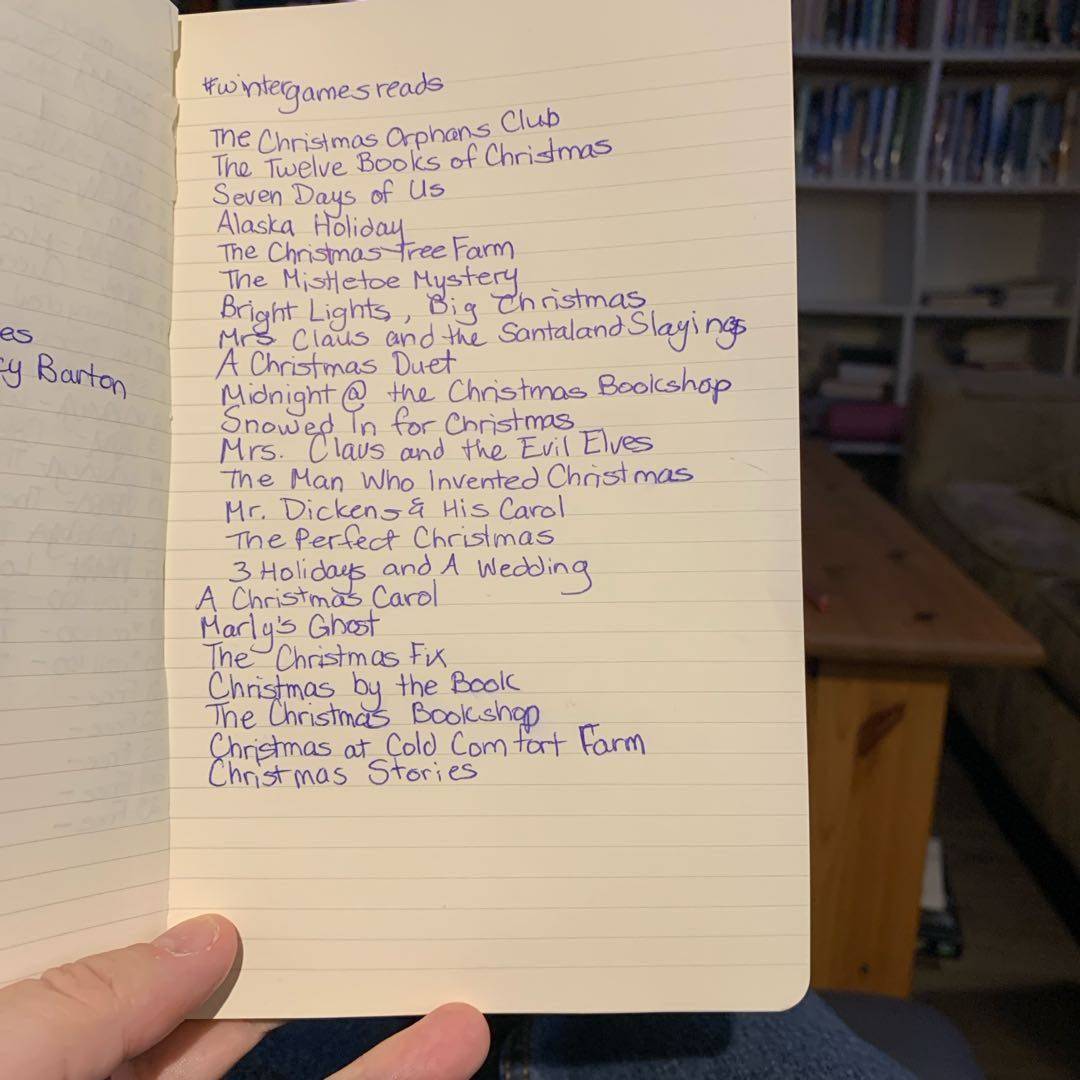 es
y Barton
#wintergamesreads
The Christmas Orphans Club
The Twelve Books of Christmas
Seven Days of Us
Alaska Holiday
The Christmas Tree Farm
The Mistletoe Mystery
Bright Lights, Big Christmas
Mrs Claus and the Santaland Slayings
A Christmas Duet
Midnight @ the Christmas Bookshop
Snowed In for Christmas
Mrs. Claus and the Evil Elves
The Man Who Invented Christmas
Mr. Dickens & His Carol
The Perfect Christmas
3 Holidays and A Wedding
A Christmas Carol
Marly's Ghost
The Christmas Fix
Christmas by the Book
The Christmas Bookshop
Christmas at Cold Comfort Farm
Christmas Stories